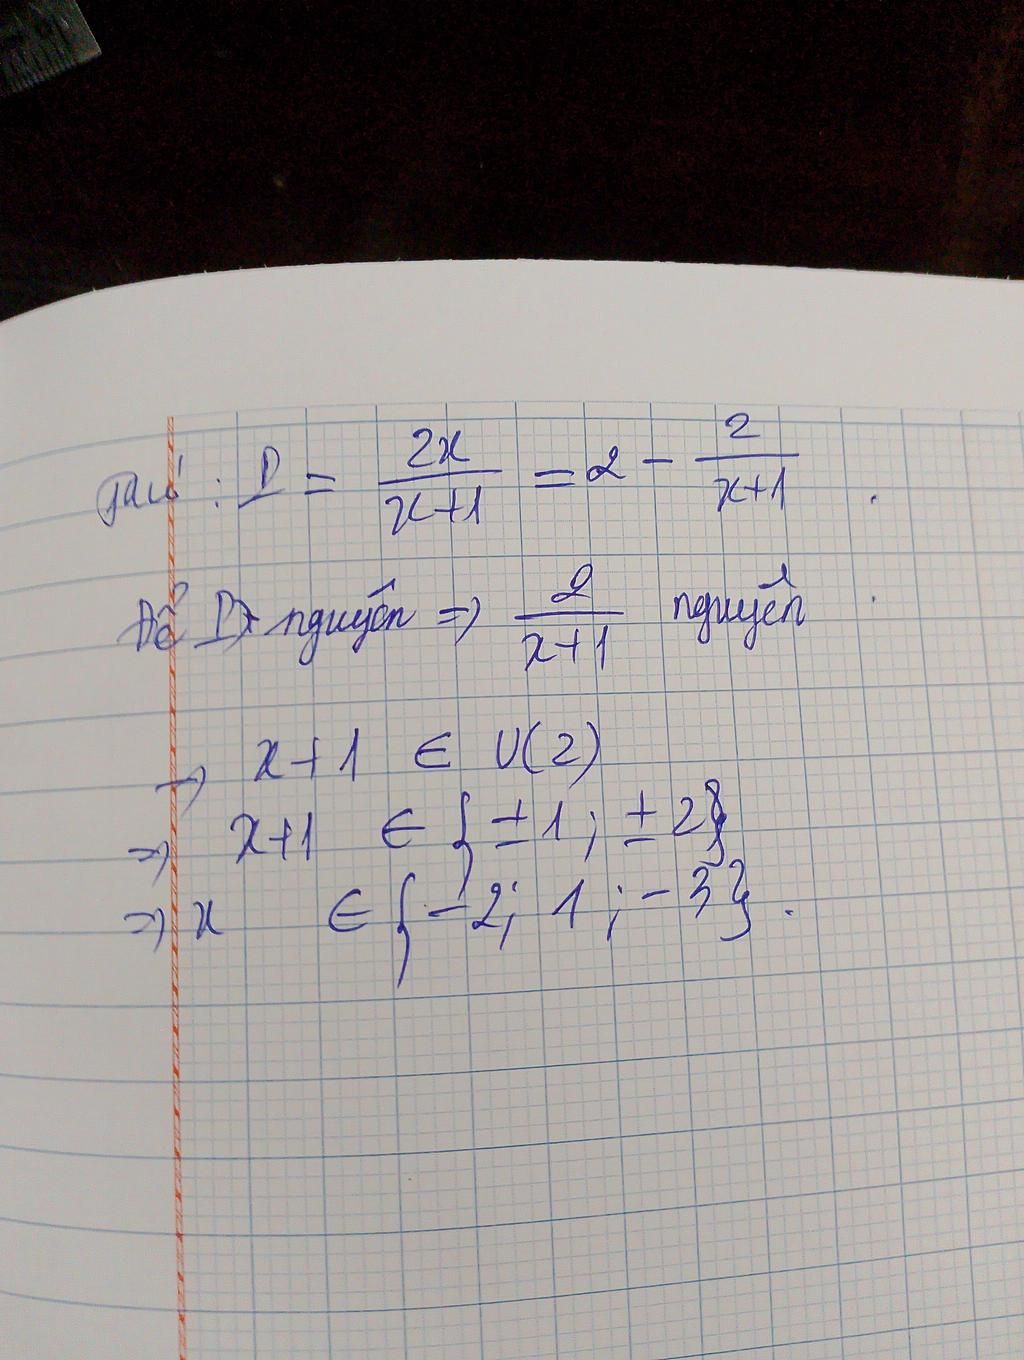 Giải : D = 2x/(x+1) = 2 - 2/(x+1) .
Để D nguyên => 2/(x+1) nguyên
=> x+1 ∈ U(2)
=> x+1 ∈ {±1; ±2}
=> x ∈ {-2; 1; -3}.